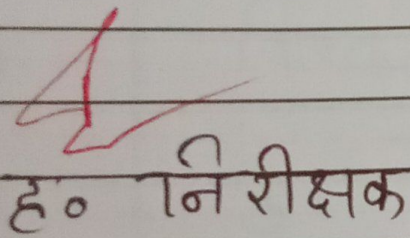 ह० निरीक्षक